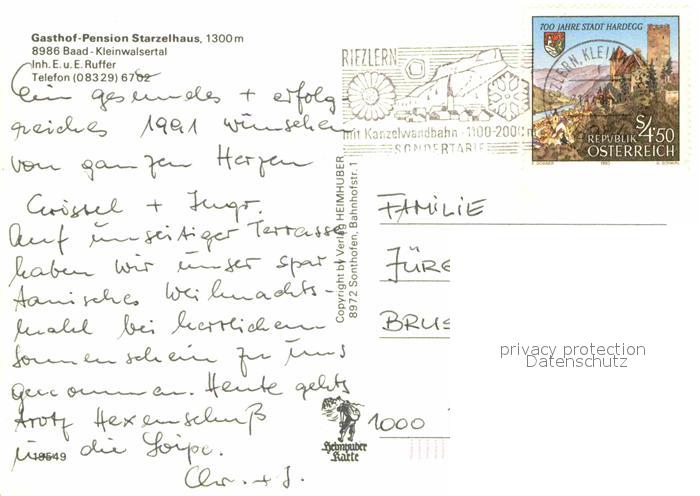 Gasthof-Pension Starzelhaus, 1300 m
8986 Baad - Kleinwalsertal
Inh. E. u. E. Ruffer
Telefon (08329) 6702
Ein gesundes + erfolg-
reiches 1991 wünschen
von ganzen Herzen
Christel + Ingr.
Auf unseitiger Terrasse
haben wir unser spar-
tanisches Weihnachts-
mahl bei herrlichem
Sonnenschein zu uns
genommen. Heute gehts
trotz Hexenschuß
in die Loipe.
Chr. + J.
18549
Copyright by Verlag HEIMHUBER
8972 Sonthofen, Bahnhofstr. 1
Heimhuber
Karte
RIEZLERN
mit Kanzelwandbahn · 1100-2000 m
SONDERTARIF
RIEZLERN, KLEIN
700 JAHRE STADT HARDEGG
S 4.50
REPUBLIK
ÖSTERREICH
1990
FAMILIE
JÜRG
BRUS
1000
privacy protection
Datenschutz